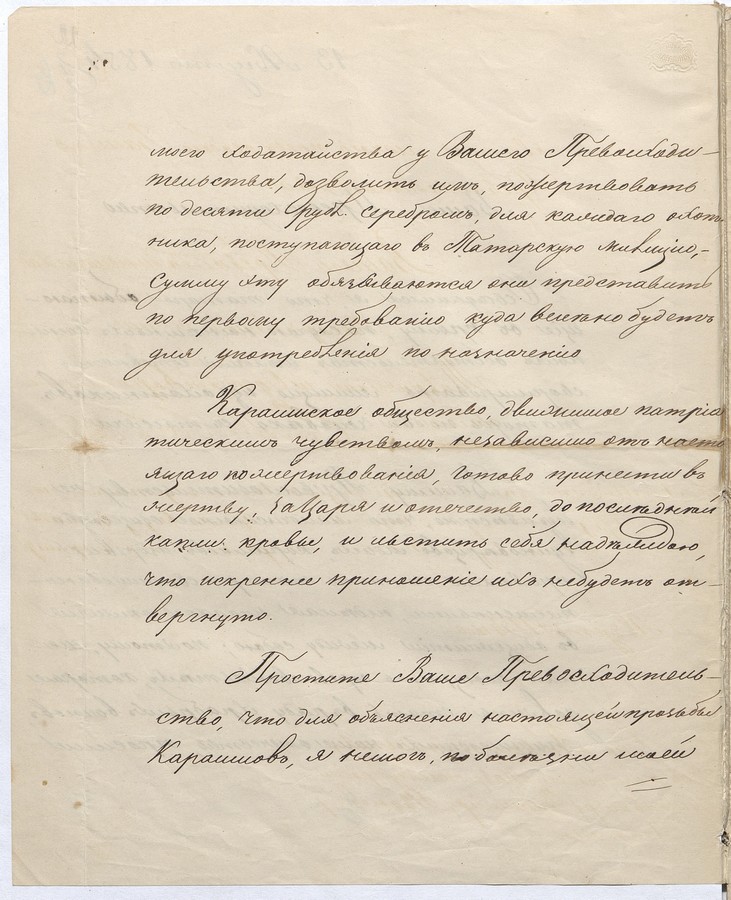 моего ходатайства у Вашего Превосходи-
тельства, дозволить имъ, пожертвовать
по десяти руб. серебромъ, для каждаго охот-
ника, поступающаго въ Татарскую милицію,-
сумму эту обязываются они представить
по первому требованію куда велѣно будетъ
для употребленія по назначенію
Караимское общество, движимое патріо-
тическимъ чувствомъ, независимо отъ насто-
ящаго пожертвованія, готово принести въ
жертву, за Царя и отечество, до послѣдней
капли кровь, и льстить себя надѣждою,
что искреннее приношеніе ихъ небудетъ от-
вергнуто.
Простите Ваше Превосходитель-
ство, что для объясненія настоящей прозьбы
Караимовъ, я немогъ, по болѣзни моей